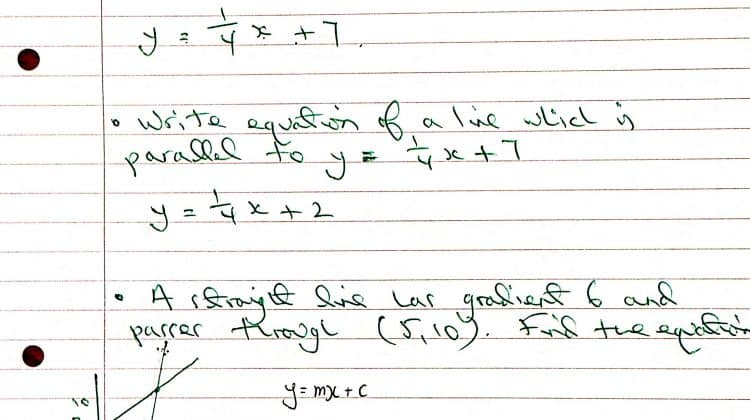 y = 1/4 x + 7
• Write equation of a line which is
parallel to y = 1/4 x + 7
y = 1/4 x + 2
• A straight line has gradient 6 and
passes through (5, 10). Find the equation
y = mx + c
10